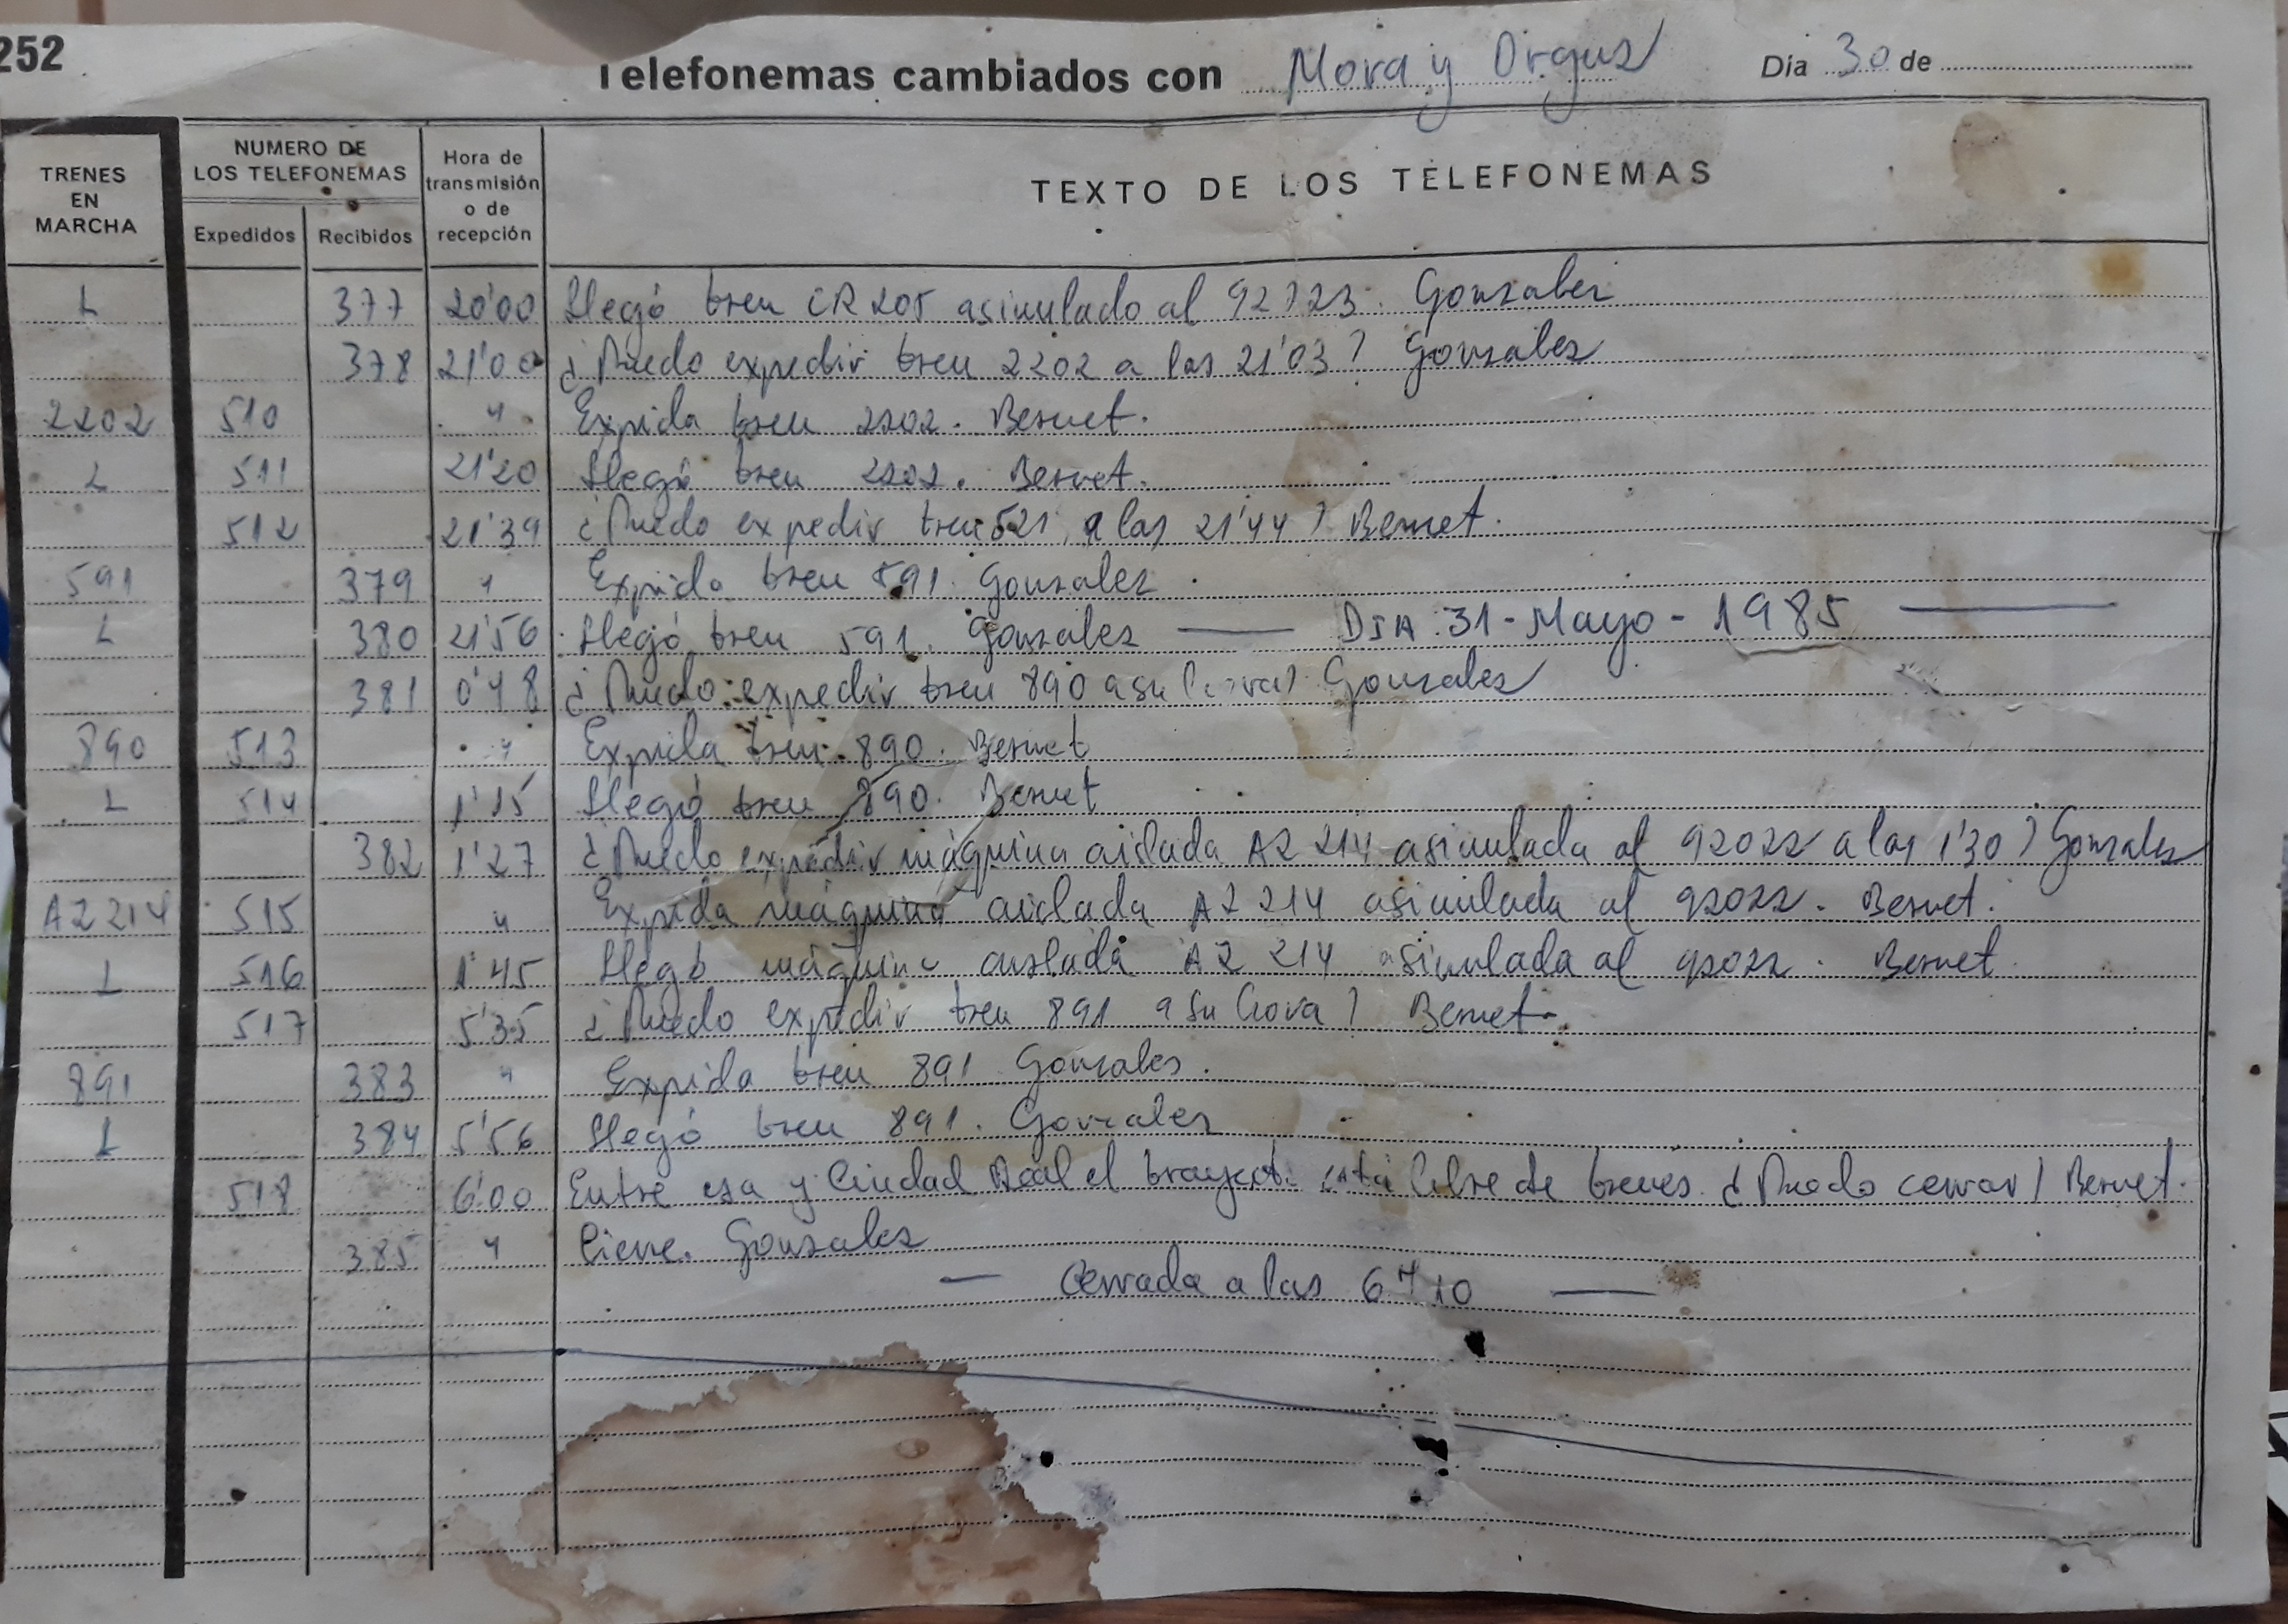 252
Telefonemas cambiados con Mora y Orgaz Dia 30 de
TRENES EN MARCHA
NUMERO DE LOS TELEFONEMAS
Expedidos Recibidos
Hora de transmisión o de recepción
TEXTO DE LOS TELEFONEMAS
L 377 20'00 Llegó tren CR205 asimulado al 92223. Gonzalez
378 21'00 ¿Puedo expedir tren 2202 a las 21'03? Gonzalez
2202 510 " Expida tren 2202. Bernet.
L 511 21'20 Llegó tren 2202. Bernet.
512 21'39 ¿Puedo expedir tren 521 a las 21'44? Bernet.
591 379 " Expida tren 591. Gonzalez
L 380 21'56 Llegó tren 591. Gonzalez — DIA 31-Mayo-1985 —
381 0'48 ¿Puedo expedir tren 890 a su hora? Gonzalez
890 513 " Expida tren 890. Bernet
L 514 1'15 Llegó tren 890. Bernet
382 1'27 ¿Puedo expedir máquina aislada AZ 214 asimulada al 92022 a las 1'30? Gonzalez
AZ 214 515 " Expida máquina aislada AZ 214 asimulada al 92022. Bernet.
L 516 1'45 Llegó máquina aislada AZ 214 asimulada al 92022. Bernet
517 5'35 ¿Puedo expedir tren 891 a su hora? Bernet.
891 383 " Expida tren 891. Gonzalez.
L 384 5'56 Llegó tren 891. Gonzalez
518 6'00 Entre esa y Ciudad Real el trayecto está libre de trenes. ¿Puedo cerrar? Bernet.
385 " Cierre. Gonzalez
— Cerrada a las 6H10 —